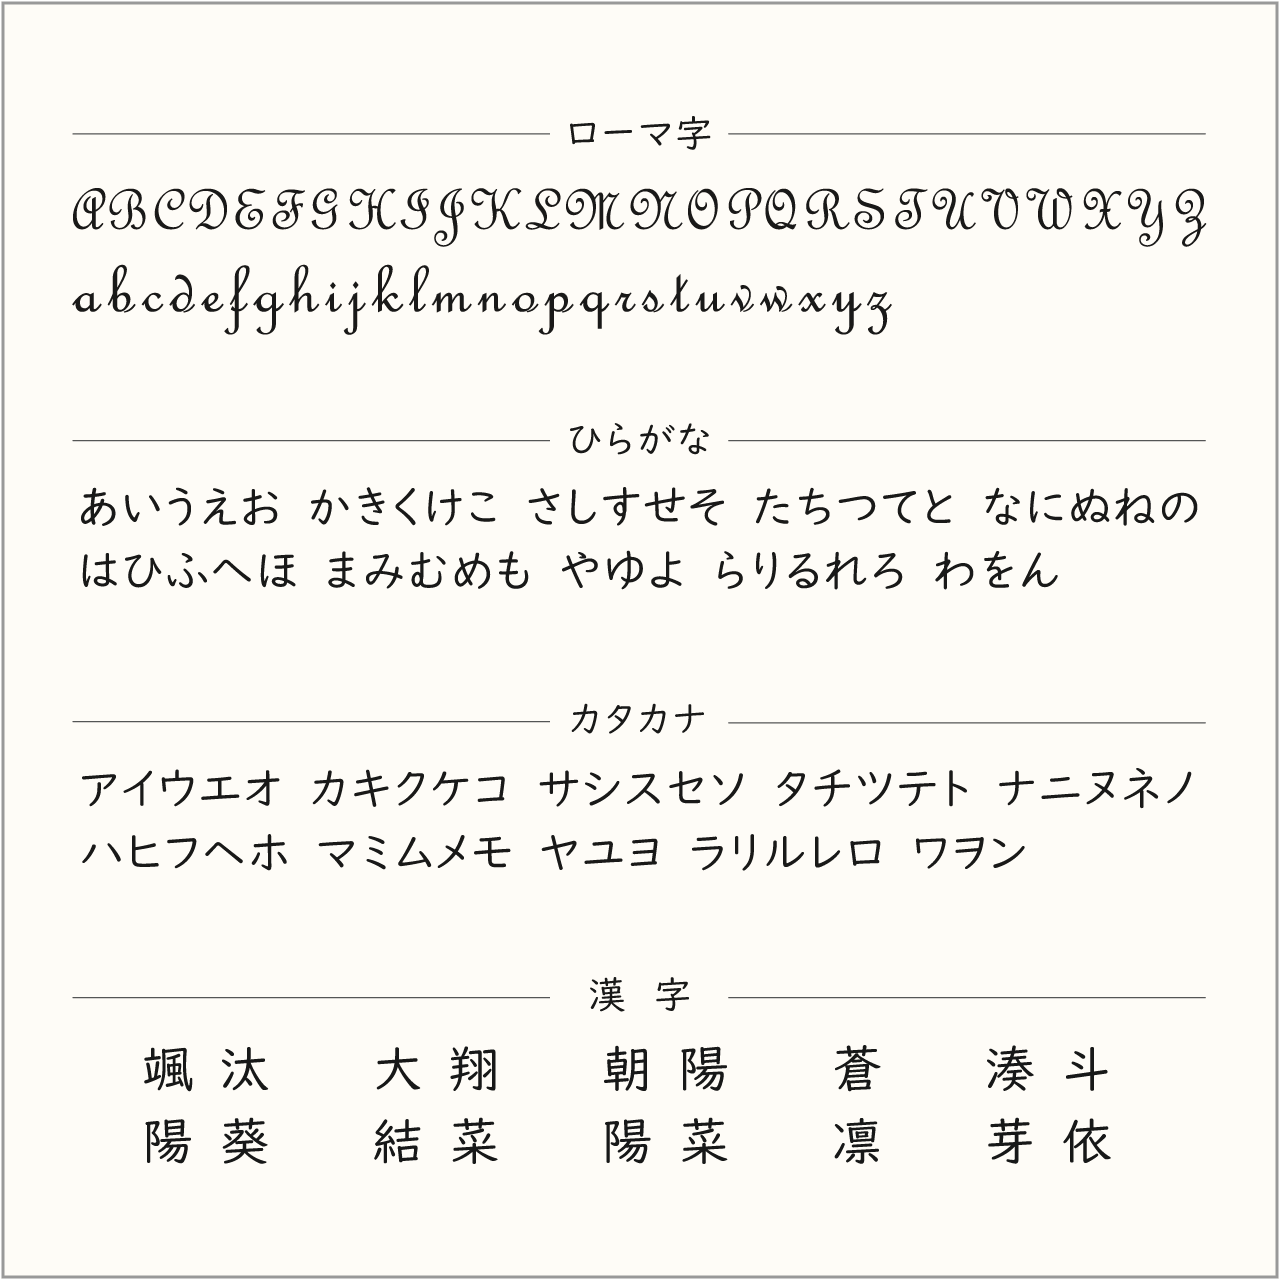 ローマ字
ABCDEFGHIJKLMNOPQRSTUVWXYZ
abcdefghijklmnopqrstuvwxyz
ひらがな
あいうえお かきくけこ さしすせそ たちつてと なにぬねの
はひふへほ まみむめも やゆよ らりるれろ わをん
カタカナ
アイウエオ カキクケコ サシスセソ タチツテト ナニヌネノ
ハヒフヘホ マミムメモ ヤユヨ ラリルレロ ワヲン
漢字
颯汰 大翔 朝陽 蒼 湊斗
陽葵 結菜 陽菜 凛 芽依